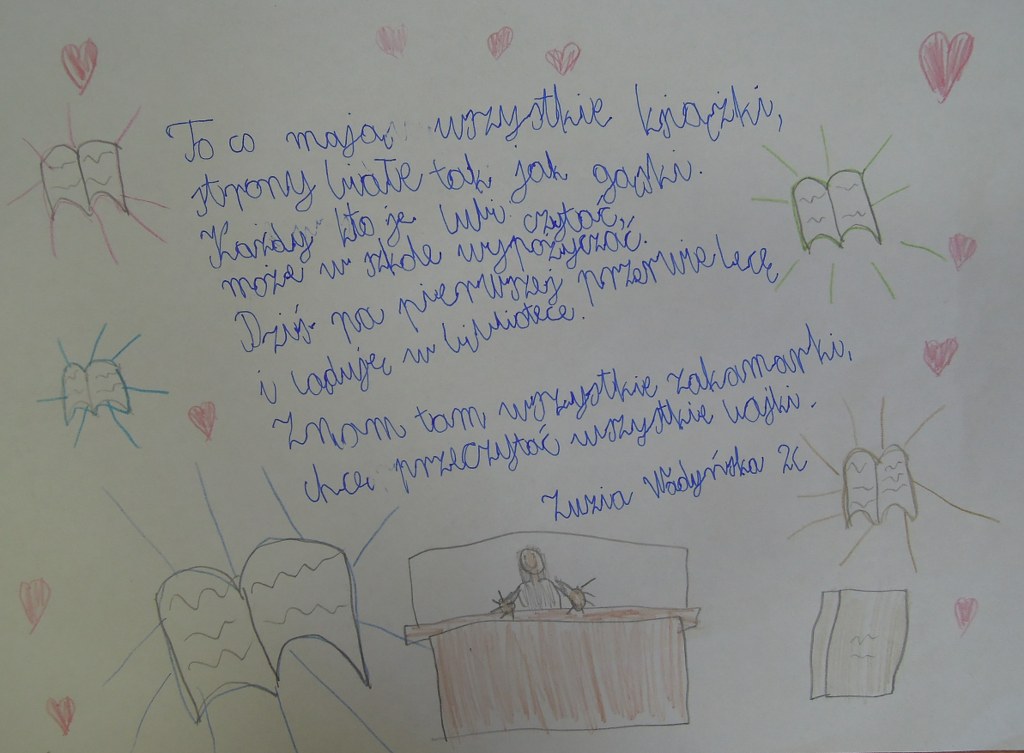 To co mają wszystkie książki,
strony białe tak jak gąski.
Każdy kto je lubi czytać,
może w szkole wypożyczać.
Dziś na pierwszej przerwie lecę
i ląduję w bibliotece.
Znam tam wszystkie zakamarki,
chcę przeczytać wszystkie bajki.
Zuzia Wądyńska 2c